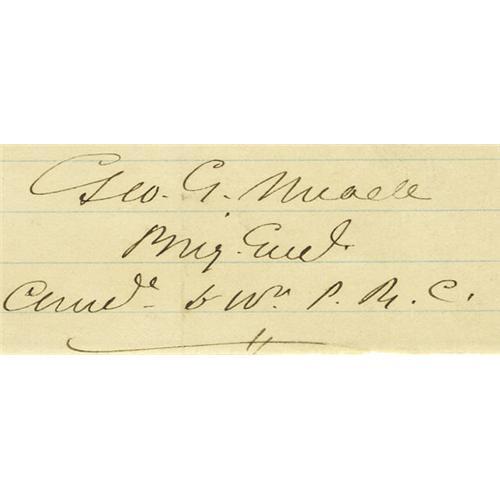 Geo. G. Meade
Brig. Genl.
Comdg. 2 Brig. P. R. C.